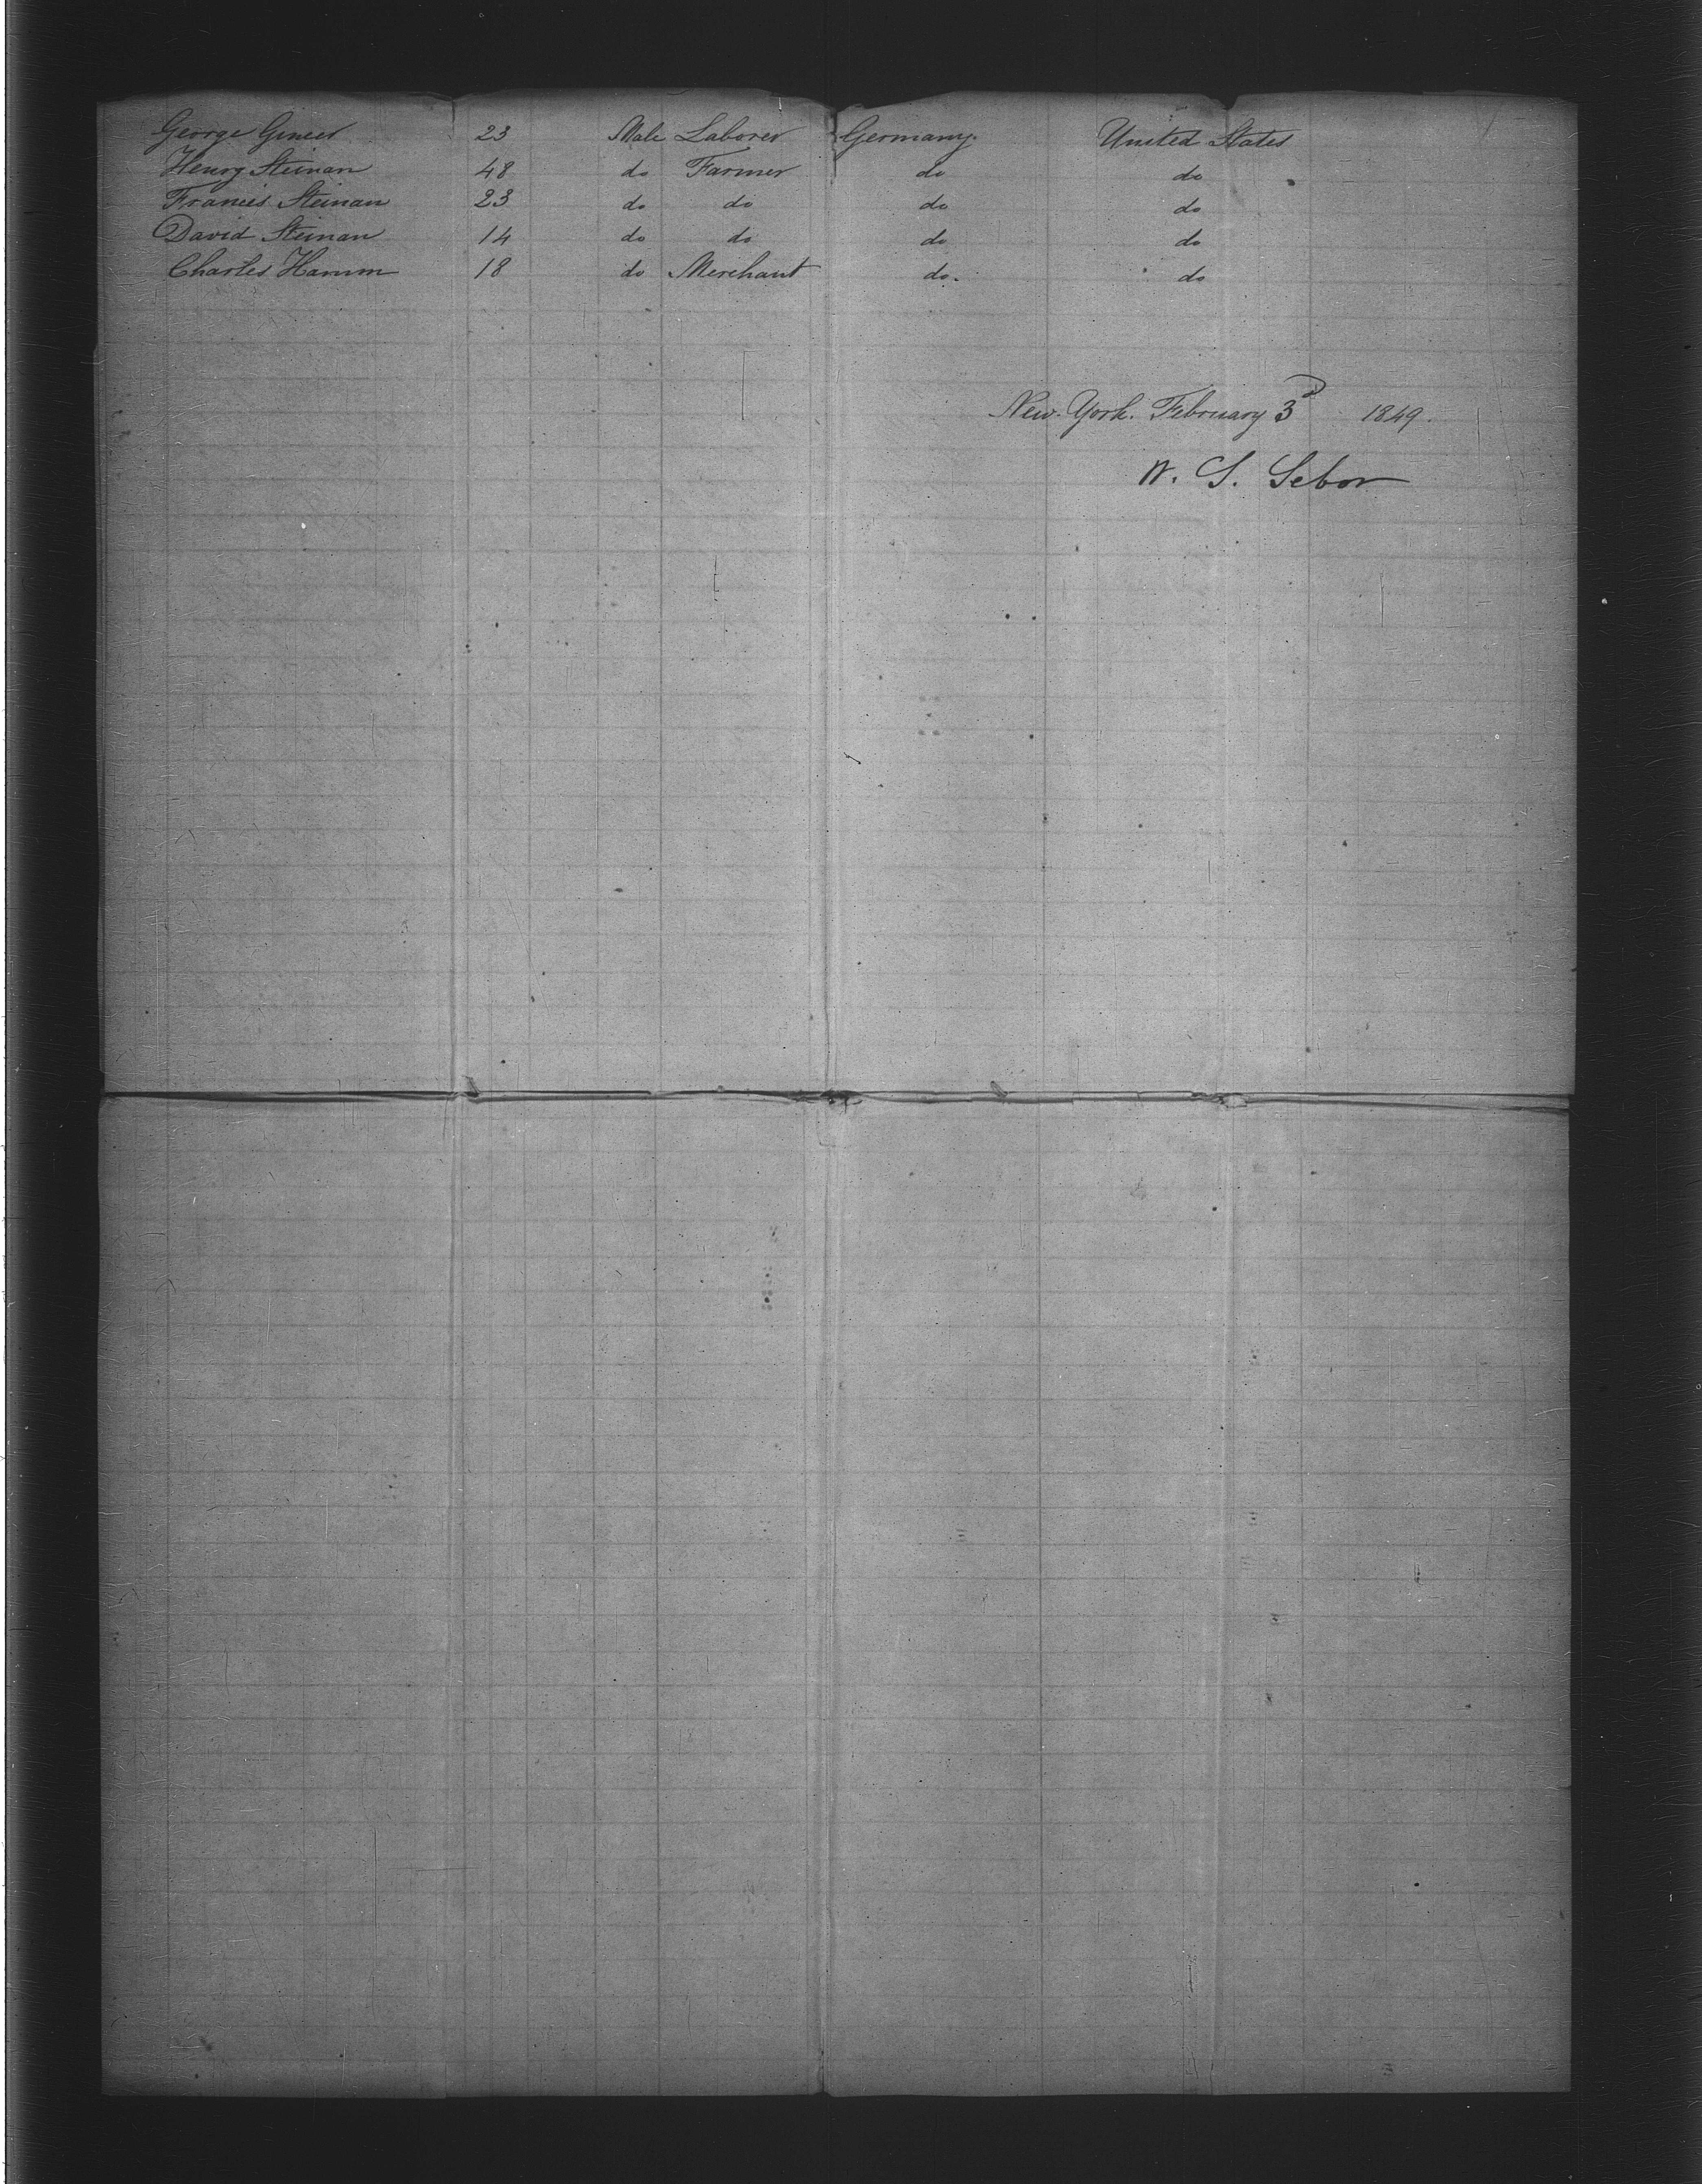 George Gmeet 23 Male Laborer Germany United States
Henry Steinan 48 do Farmer do do
Francis Steinan 23 do do do do
David Steinan 14 do do do do
Charles Hamm 18 do Merchant do. do
New-York. February 3d 1849.
W. S. Sebor